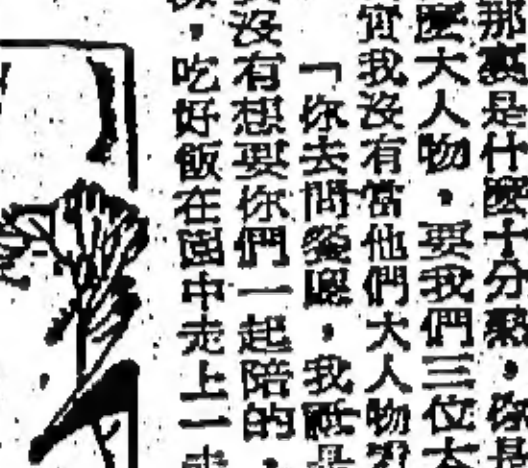 那裏是什麼十分
麼大人物，要我們三位大
我沒有當他們大人物
「你去問愛，我祇是
沒有想要你們一起陪的，
，吃好飯在園中走上一